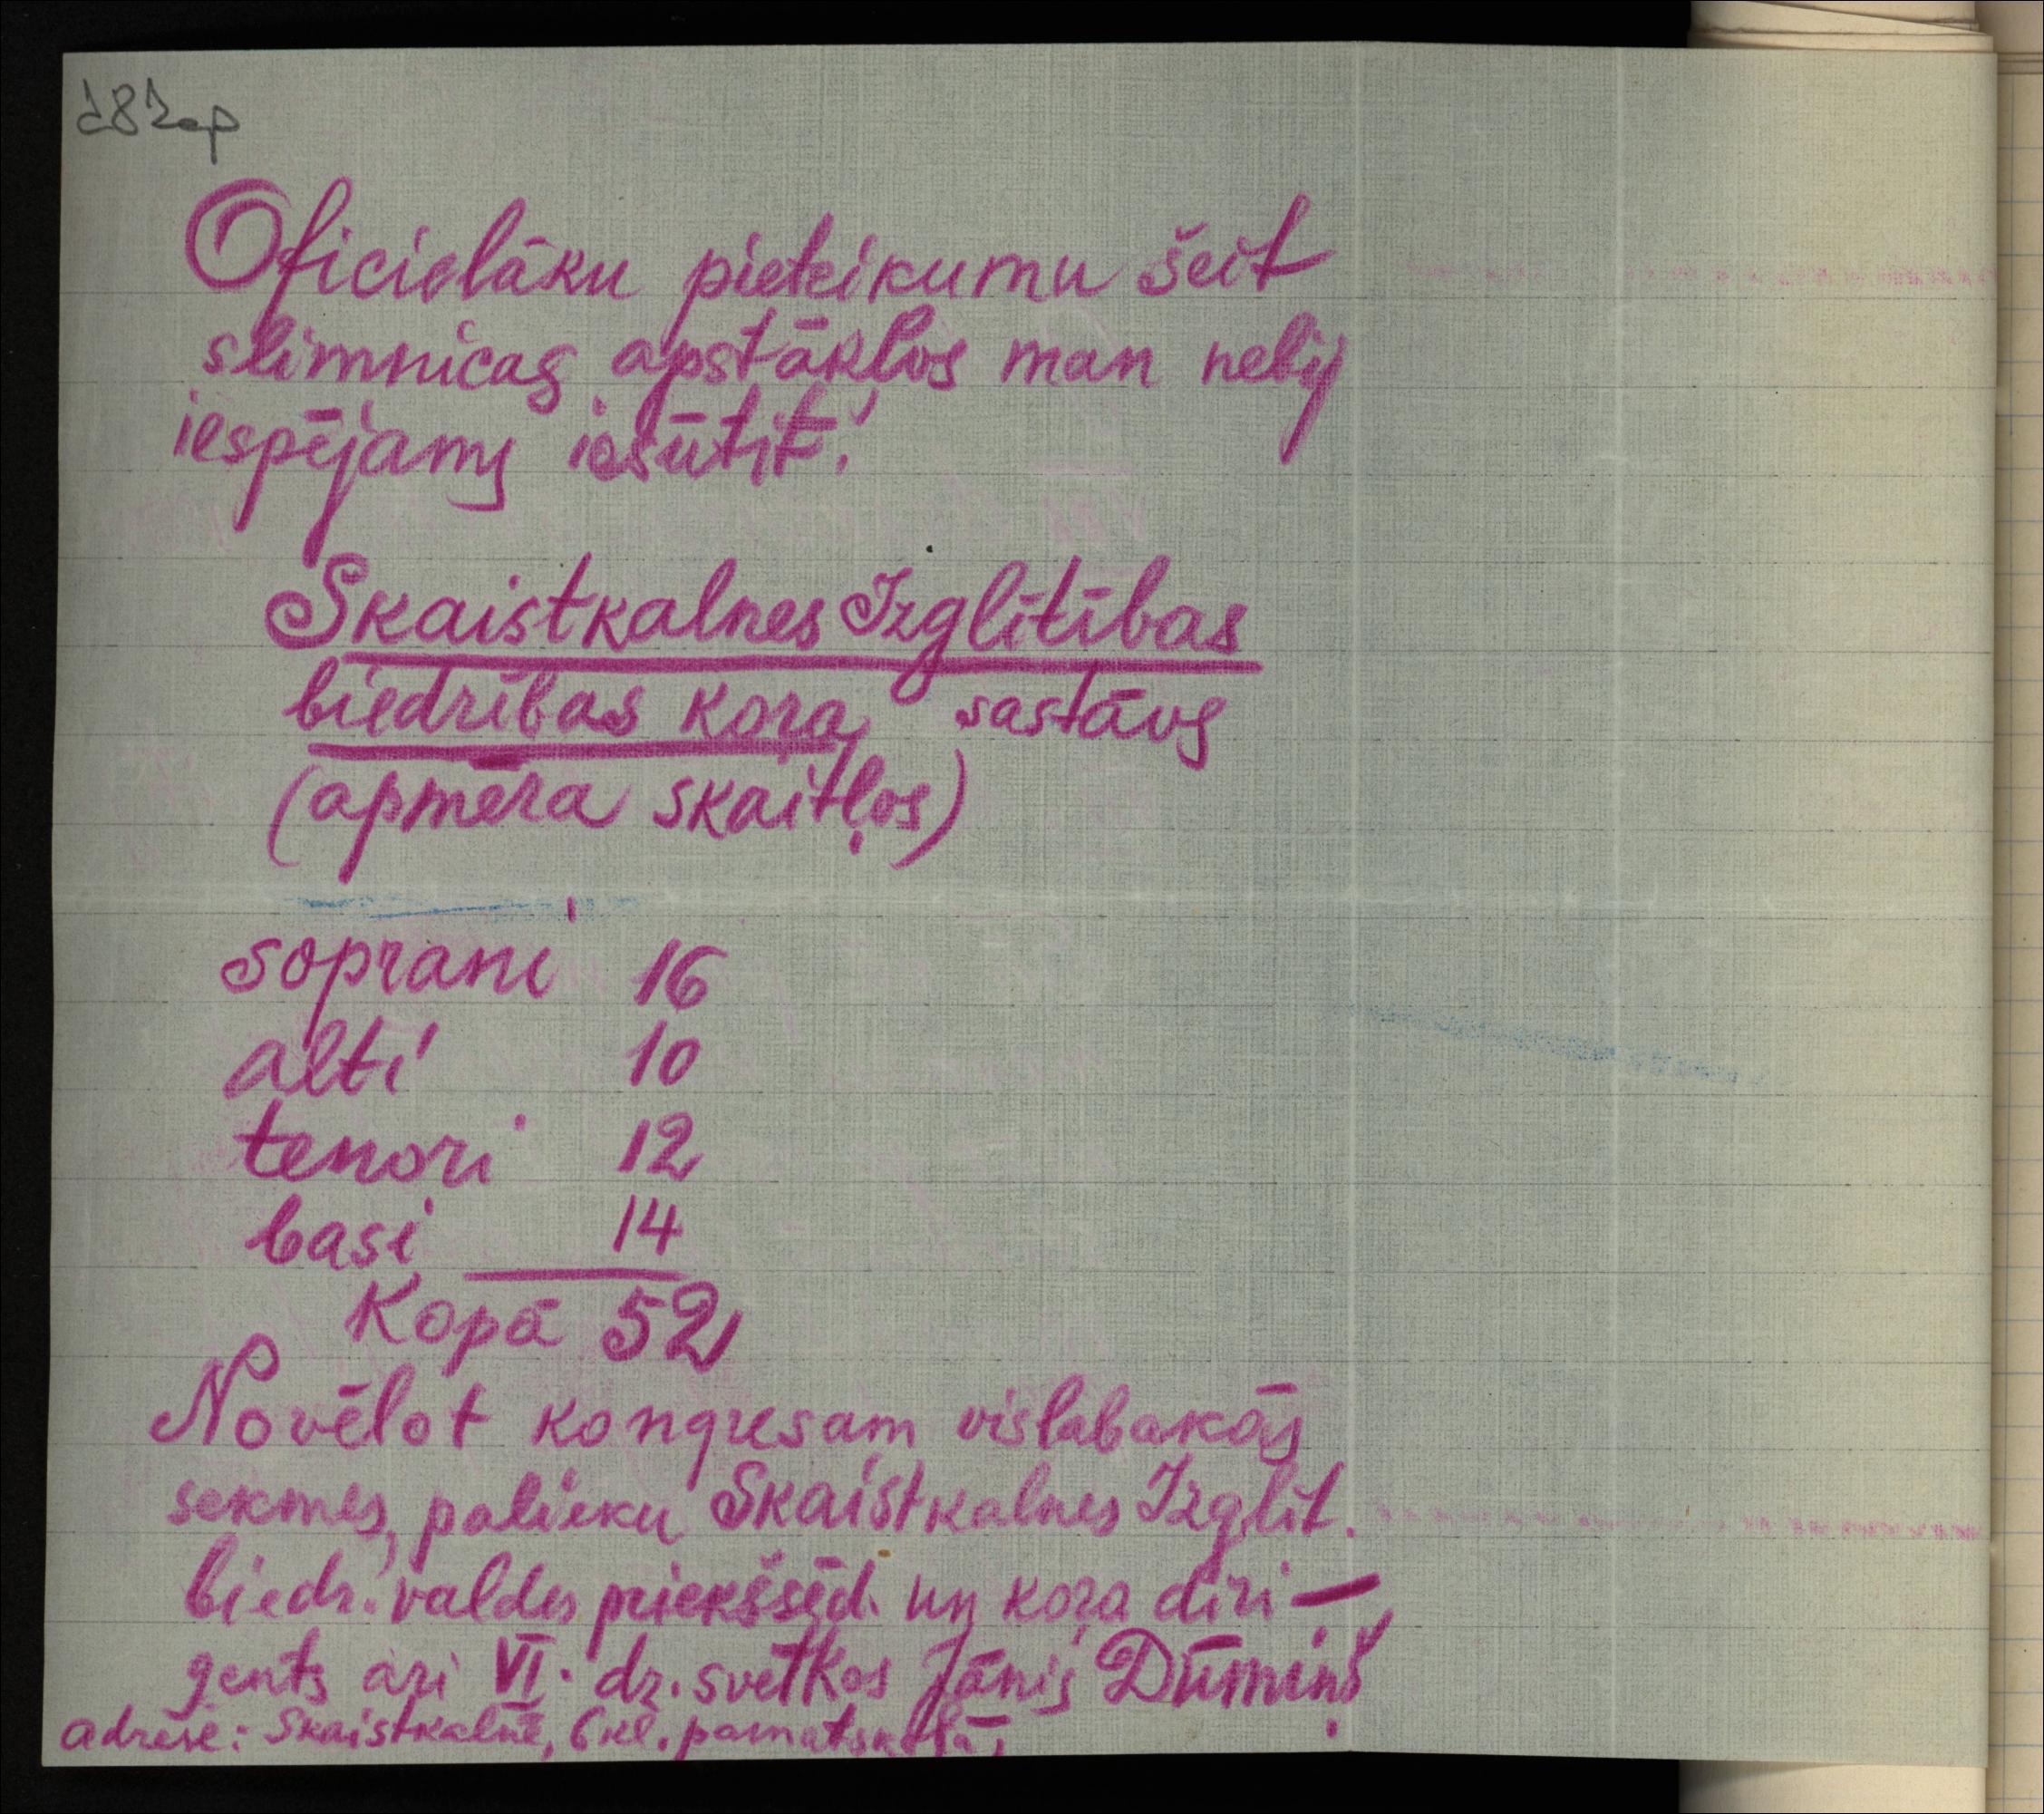 282ap
Oficielāku pieteikumu šeit
slimnicas apstākļos man nebij
iespējams iesūtit!
Skaistkalnes Izglītības
biedrības koŗa sastāvs
(apmēra skaitļos)
soprani 16
alti 10
tenori 12
basi 14
Kopā 52
Novēlot kongresam vislabakās
sekmes, palieku Skaistkalnes Izglīt.
biedr. valdes priekšsēd. un koŗa diri-
gents ari VI. dz. svētkos Jānis Dūmiņš
adrese: Skaistkalnē, 6 kl. pamatskolā,